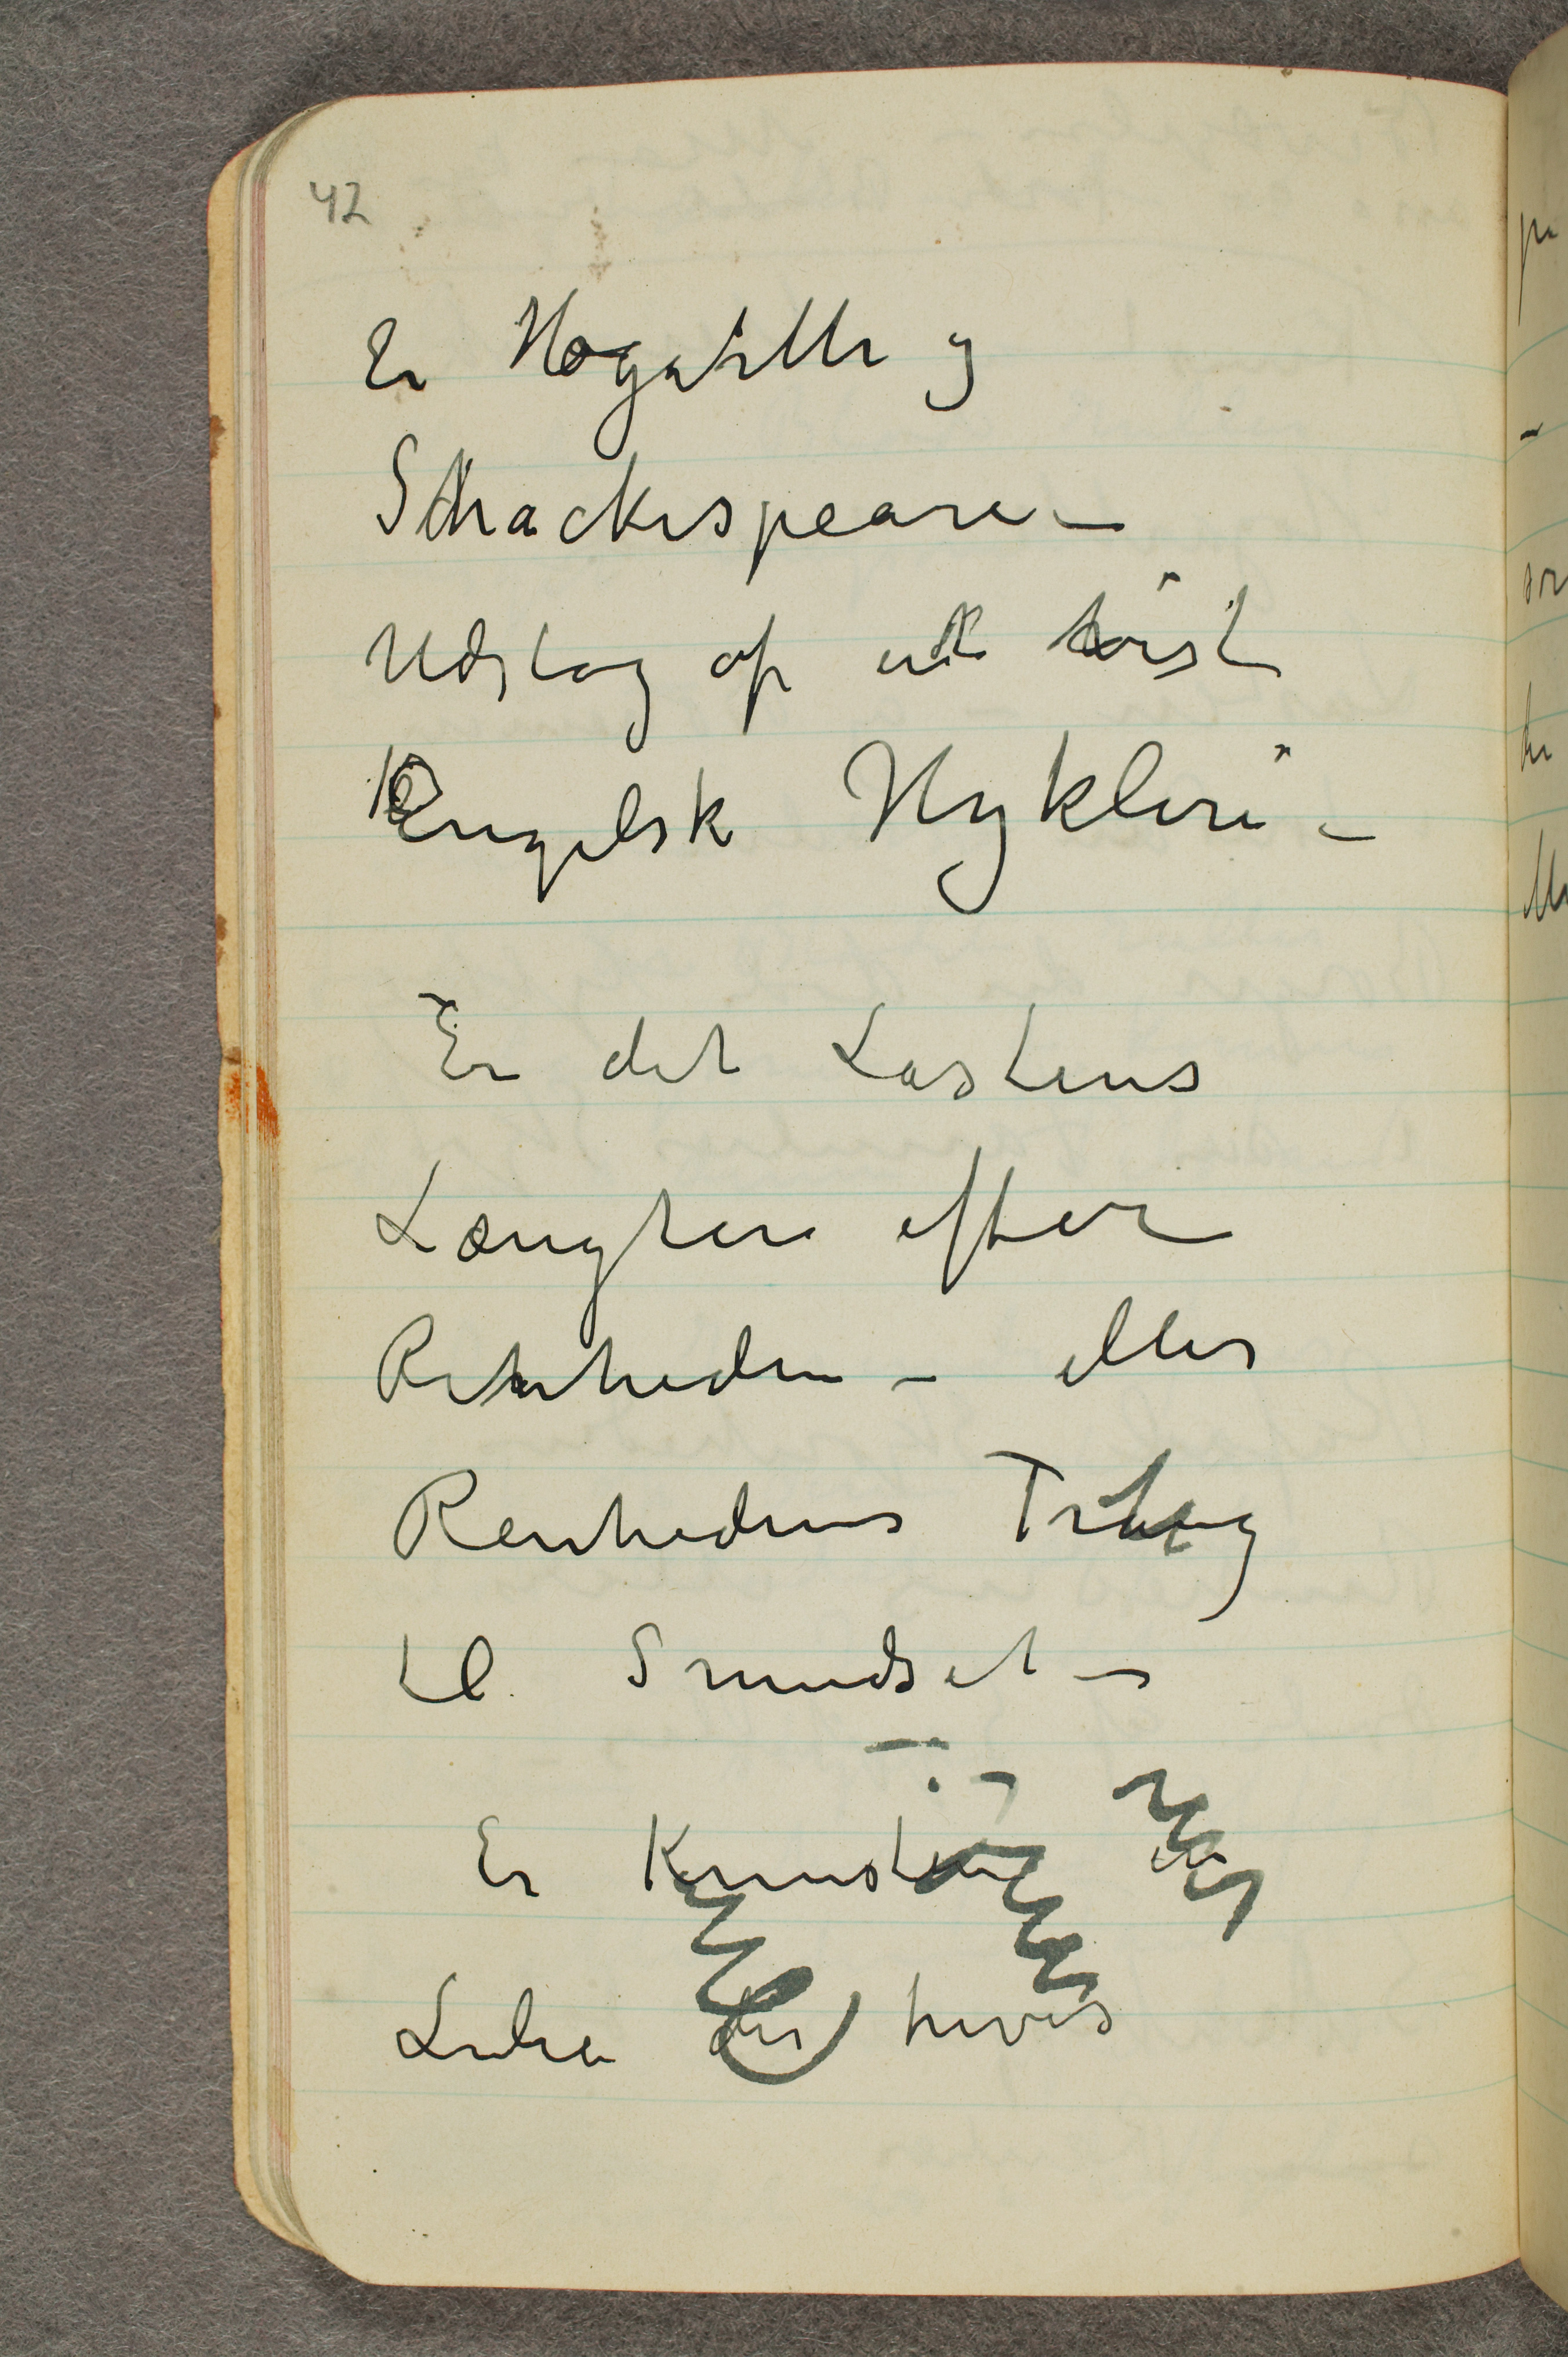 42
Er Hogarth og
Schackespeare –
Udslag af en tørst
Engelsk Hykleri –
Er det Lastens
Længsen efter
Renheden – eller
Renhedens Trang
til Smudset –
Er Kunsten en
der hives